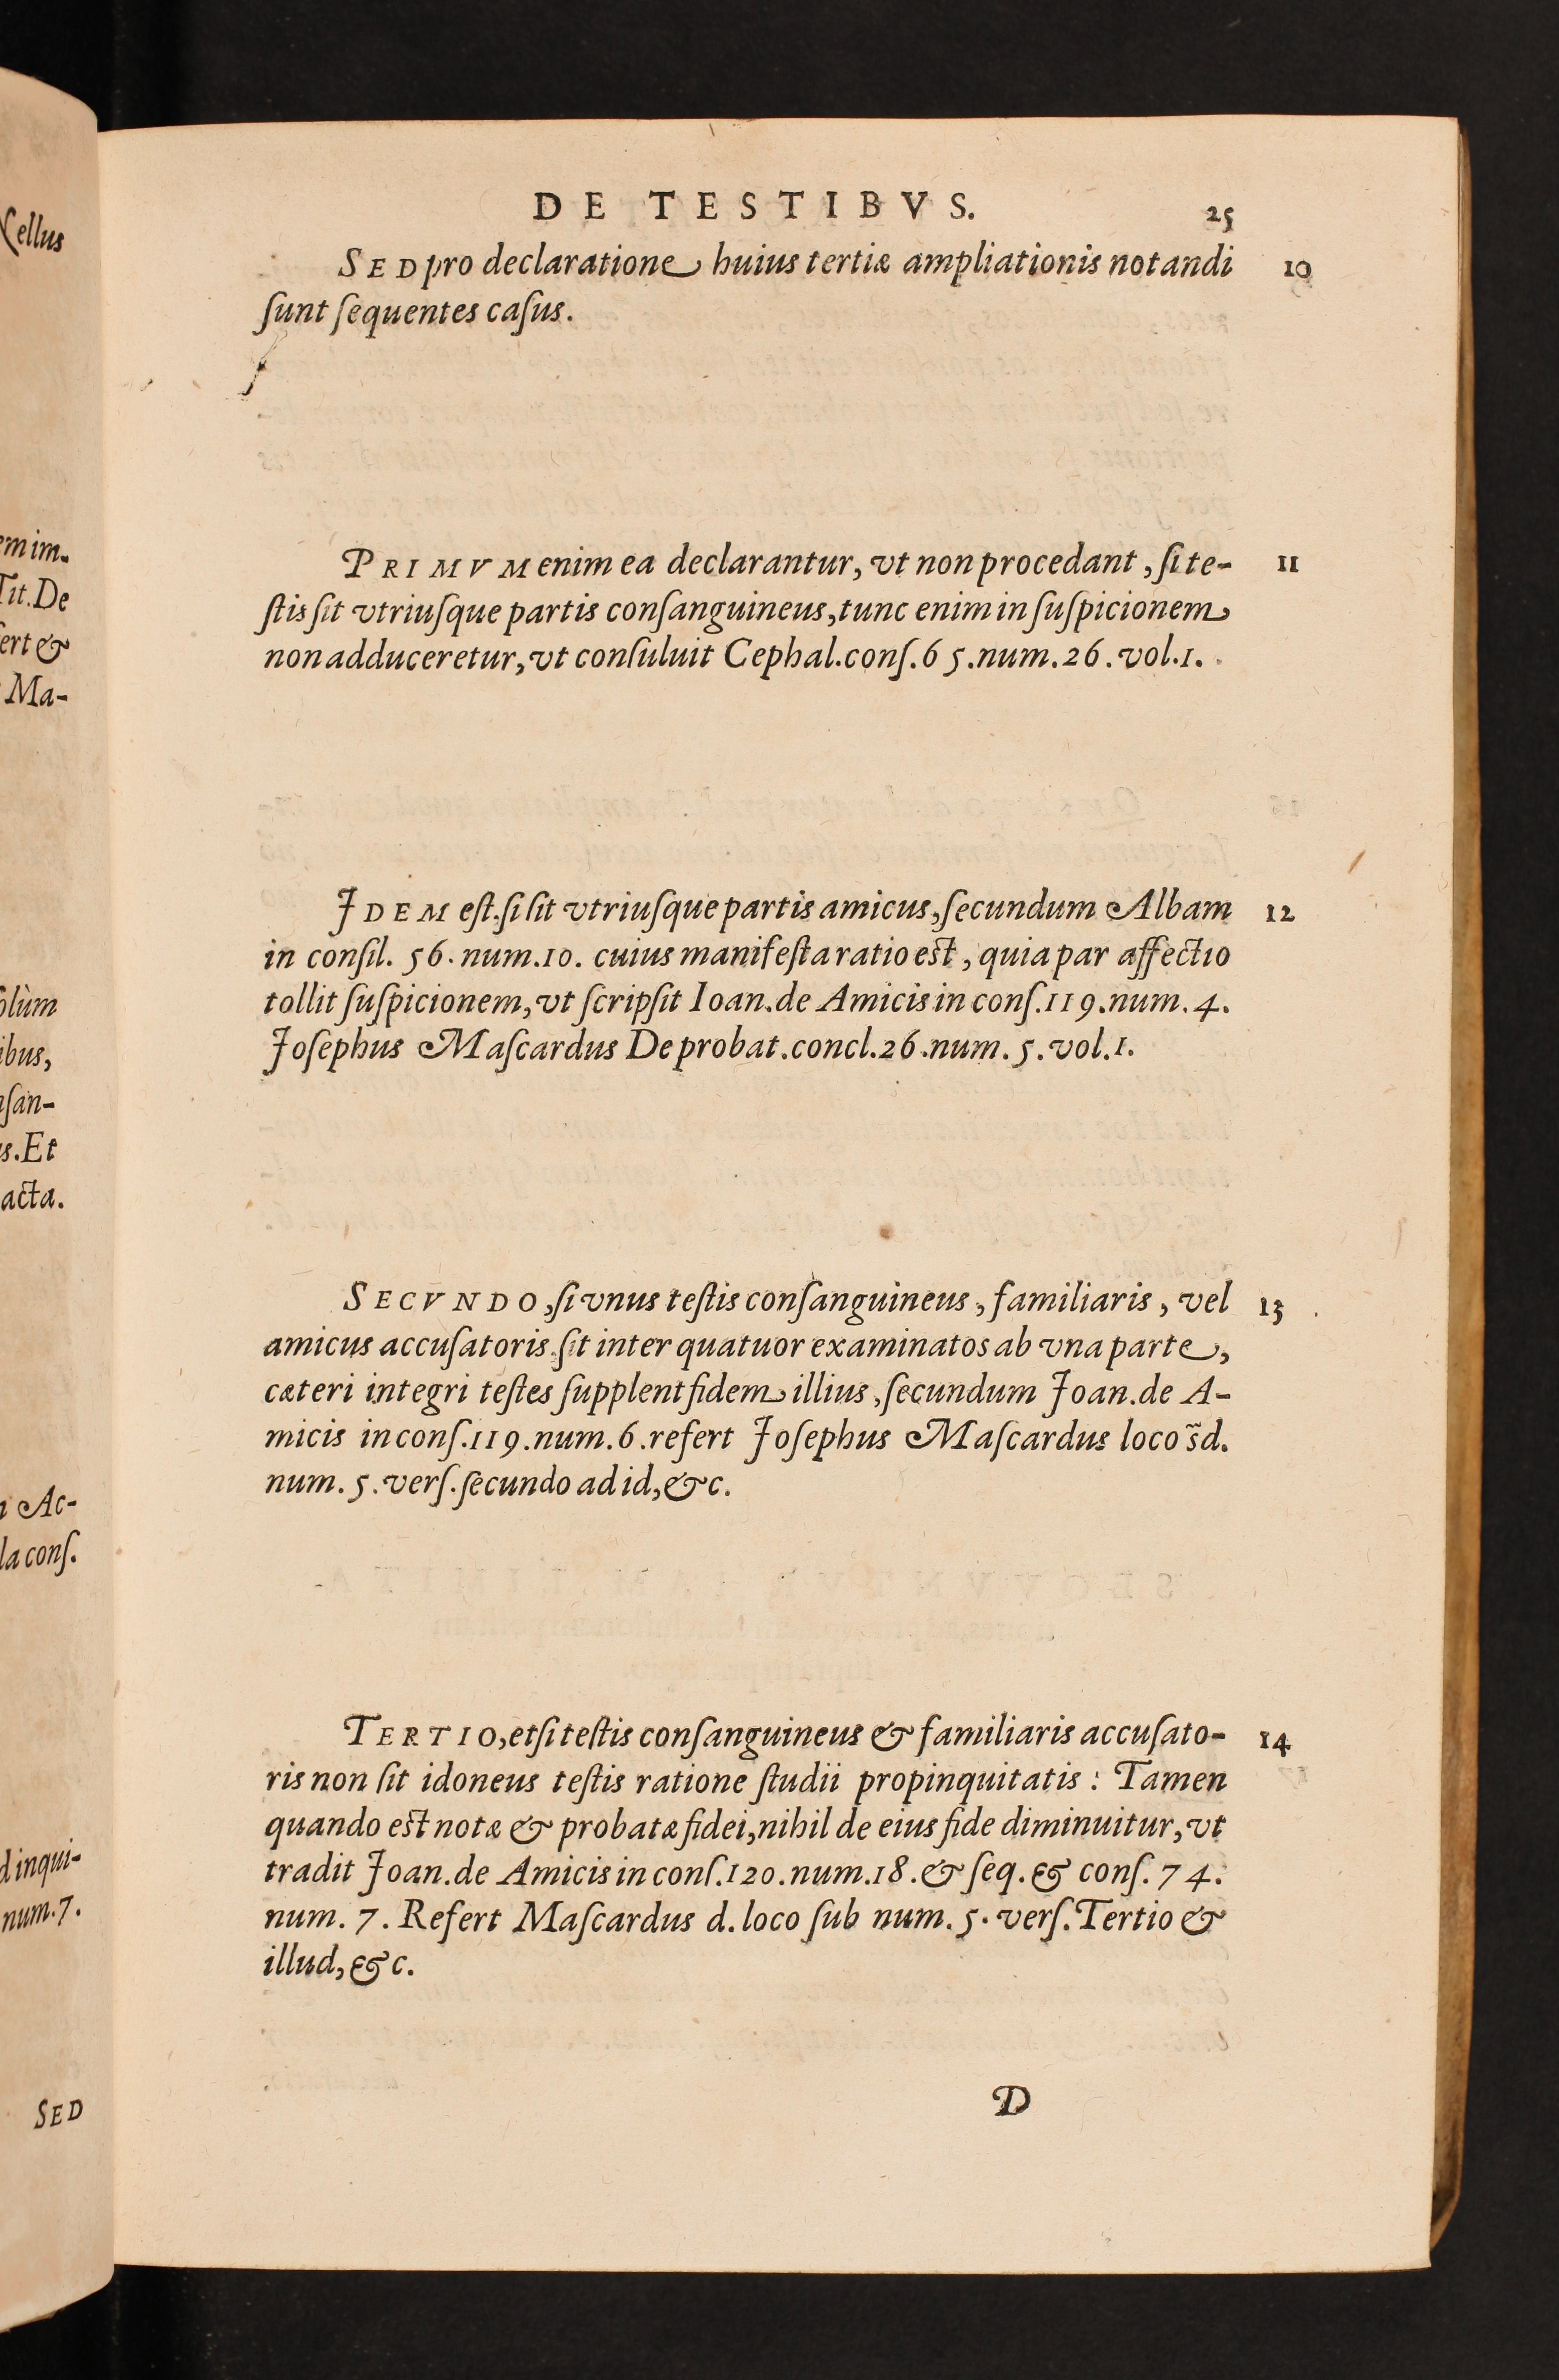 DE TESTIBVS. 25
SED pro declaratione huius tertiæ ampliationis notandi 10
ſunt ſequentes caſus.
PRIMVM enim ea declarantur, vt non procedant, ſi te- 11
ſtis ſit vtriuſque partis conſanguineus, tunc enim in ſuſpicionem
non adduceretur, vt conſuluit Cephal. conſ. 65. num. 26. vol. 1.
IDEM eſt. ſi ſit vtriuſque partis amicus, ſecundum Albam 12
in conſil. 56. num. 10. cuius manifeſta ratio est, quia par affectio
tollit ſuſpicionem, vt ſcripſit Ioan. de Amicis in conſ. 119. num. 4.
Joſephus Maſcardus De probat. concl. 26. num. 5. vol. 1.
SECVNDO, ſi vnus teſtis conſanguineus, familiaris, vel 13
amicus accuſatoris. ſit inter quatuor examinatos ab vna parte,
cæteri integri teſtes ſupplent fidem illius, ſecundum Joan. de A-
micis in conſ. 119. num. 6. refert Joſephus Maſcardus loco s̃d.
num. 5. verſ. ſecundo ad id, &c.
TERTIO, etſi teſtis conſanguineus & familiaris accuſato- 14
ris non ſit idoneus teſtis ratione ſtudii propinquitatis: Tamen
quando est notæ & probatæ fidei, nihil de eius fide diminuitur, vt
tradit Joan. de Amicis in conſ. 120. num. 18. & ſeq. & conſ. 74.
num. 7. Refert Maſcardus d. loco ſub num. 5. verſ. Tertio &
illud, &c.
D
ellus
em im-
Tit. De
fert &
Ma-
olùm
ibus,
nſan-
s. Et
acta.
Ac-
la conſ.
d inqui-
num. 7.
SED